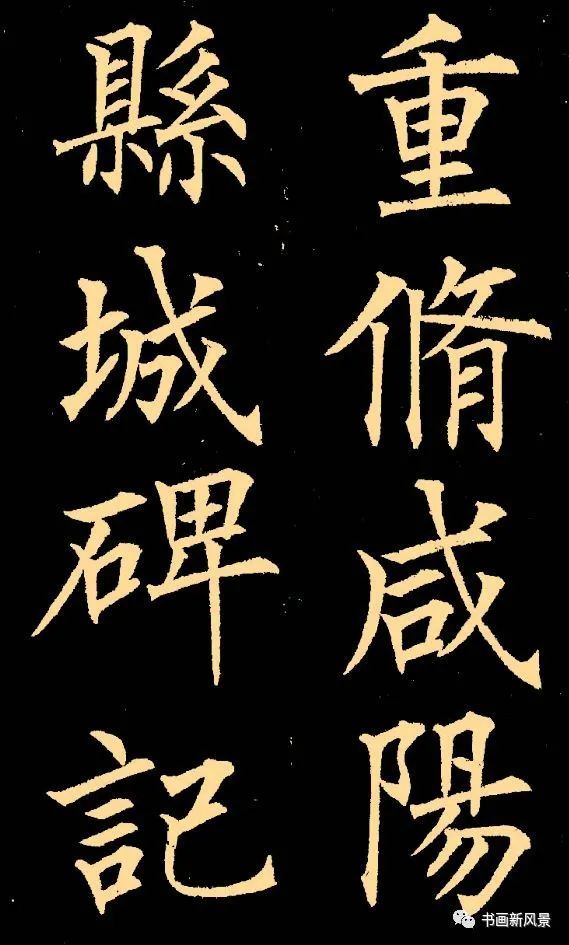 重脩咸陽
縣城碑記
书画新风景